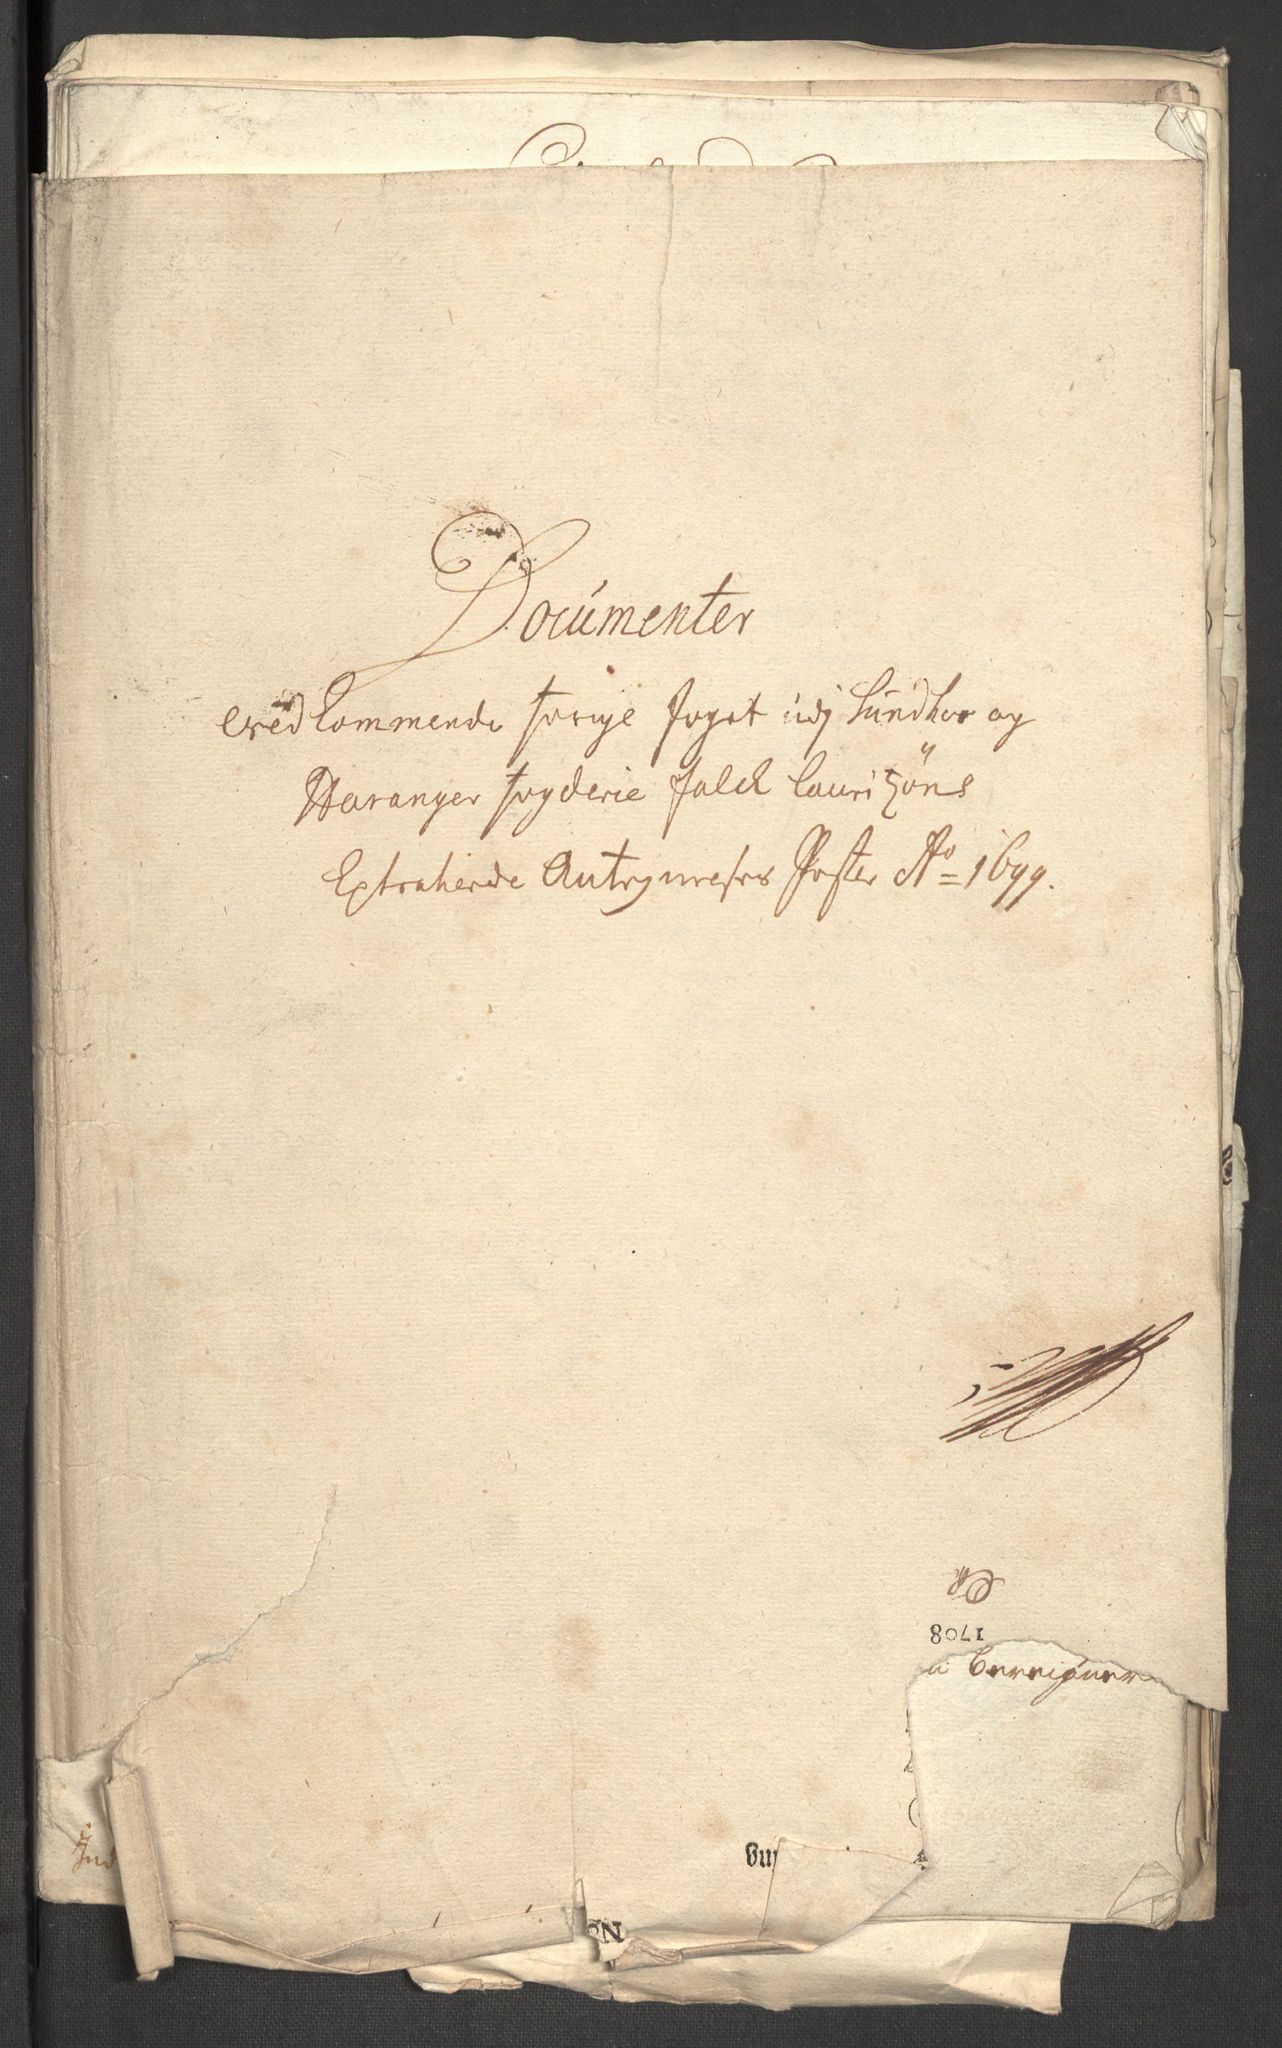 Documenter
ved kommende forige foget udj Sundhor og
Haranger fogderie falck lauritzöns
Extraherde Antegnelses Poster Ao= 1699.
1708